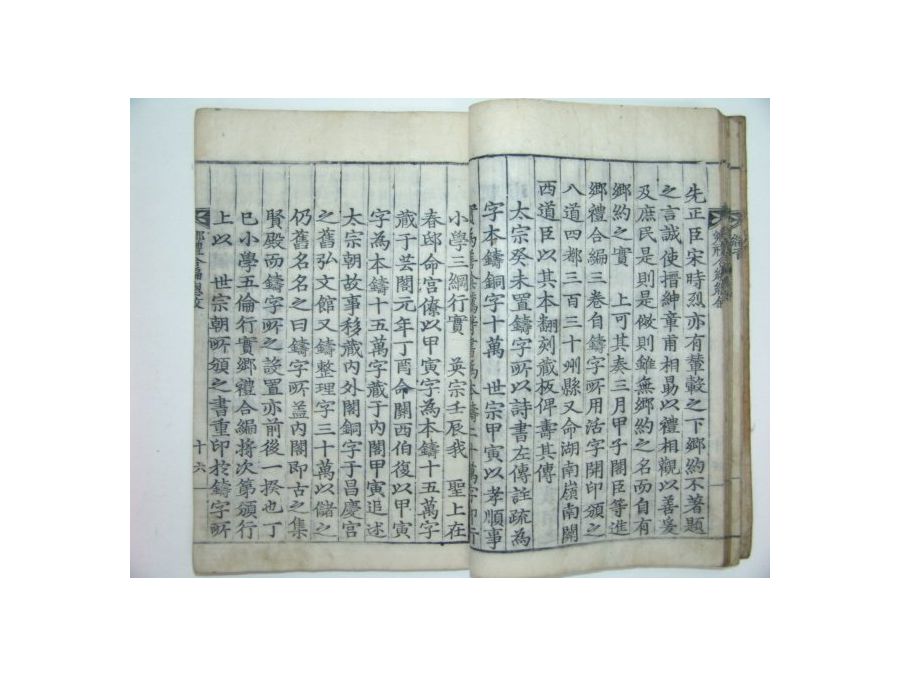 先正臣宋時烈亦有輦轂之下鄉約不著題
之言誠使搢紳章甫相勖以禮相觀以善爰
及庶民是則是倣則雖無鄉約之名而自有
鄉約之實 上可其奏三月甲子閣臣等進
鄉禮合編一卷自鑄字所用活字開印頒之
八道四都三百三十州縣又命湖南嶺南關
西道臣以其本翻刻藏板俾壽其傳
太宗癸未置鑄字所以詩書左傳註疏為
字本鑄銅字十萬 世宗甲寅以孝順事
小學三綱行實 英宗壬辰我 聖上在
春邸命宮僚以甲寅字為本鑄十五萬字
藏于芸閣元年丁酉命關西伯復以甲寅
字為本鑄十五萬字藏于內閣甲寅追述
太宗朝故事移藏內外閣銅字于昌慶宮
之舊弘文館又鑄整理字三十萬以儲之
仍舊名名之曰鑄字所盖內閣即古之集
賢殿而鑄字所之設置亦前後一揆也丁
巳小學五倫行實鄉禮合編將次第頒行
上以 世宗朝所頒之書重印於鑄字所
鄉禮合編總敘
十六